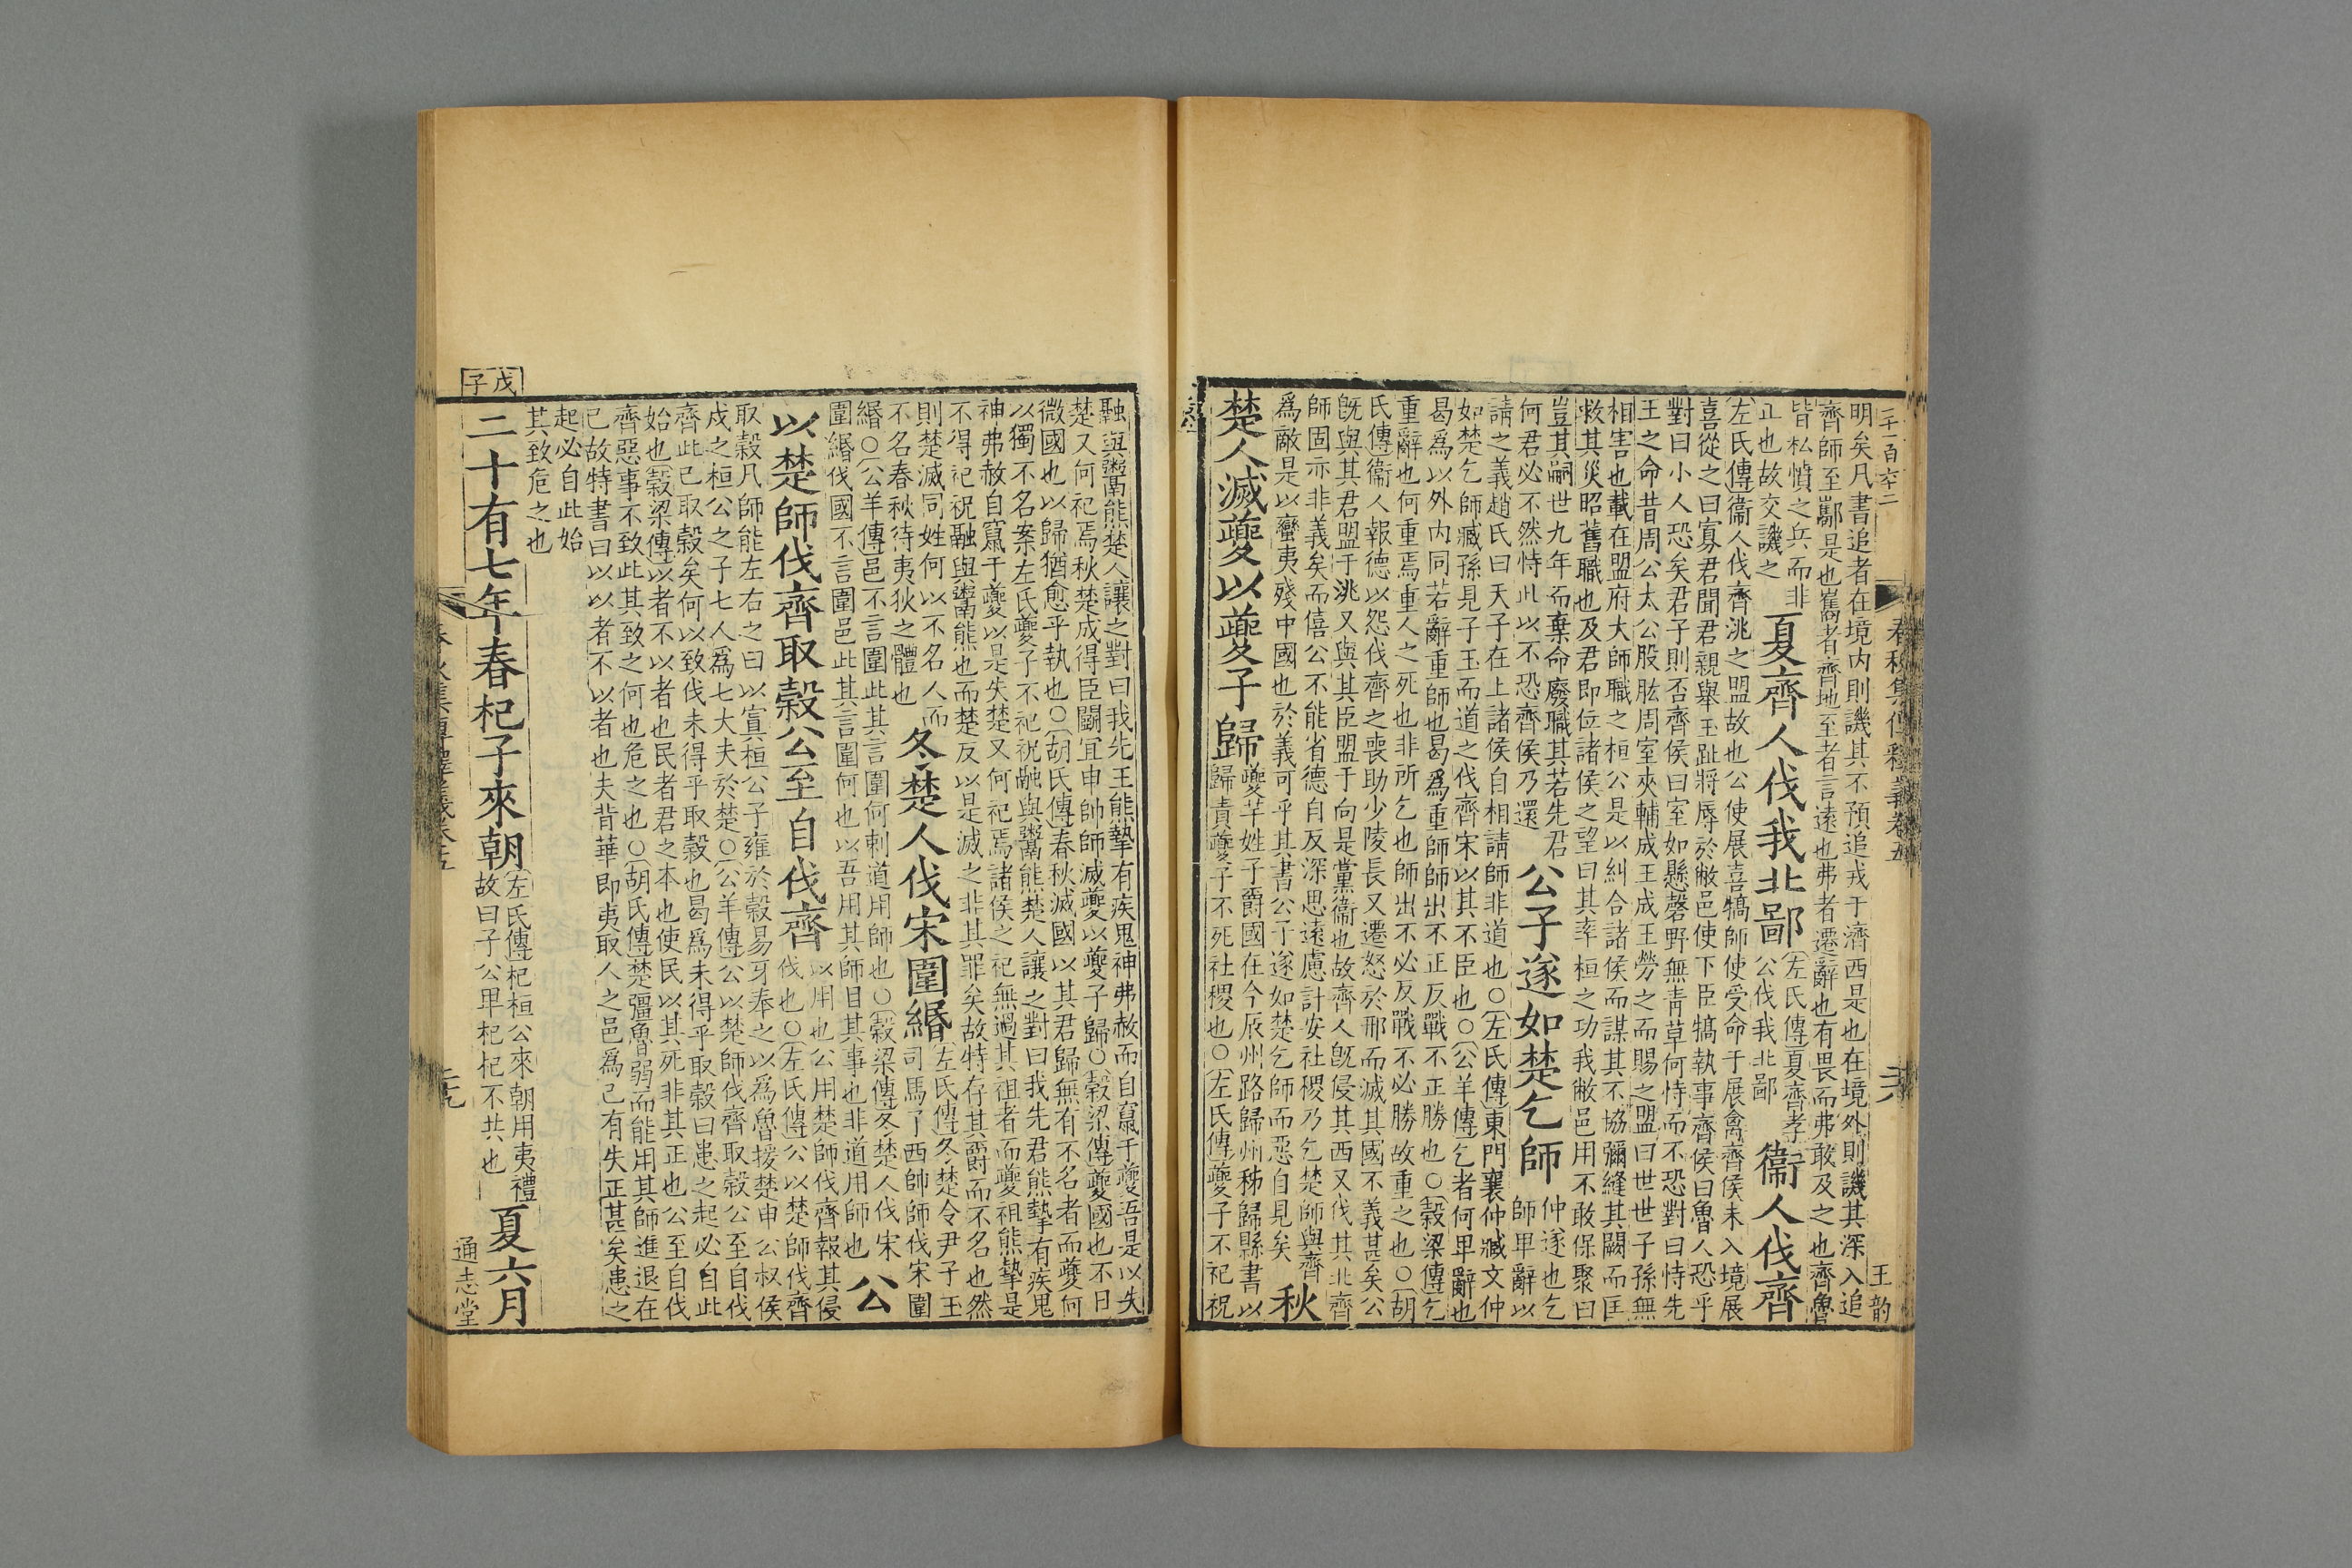 明矣凡書追者在境内則譏其不預追戎于濟西是也在境外則譏其深入追
齊師至酅是也巂者齊地至者言遠也弗者遷辭也有畏而弗敢及之也齊魯
皆私憤之兵而非
正也故交譏之
夏齊人伐我北鄙
左氏傳夏齊孝
公伐我北鄙
衞人伐齊
左氏傳衞人伐齊洮之盟故也公使展喜犒師使受命于展禽齊侯未入境展
喜從之曰寡君聞君親舉玉趾將辱於敝邑使下臣犒執事齊侯曰魯人恐乎
對曰小人恐矣君子則否齊侯曰室如懸磬野無青草何恃而不恐對曰恃先
王之命昔周公太公股肱周室夾輔成王成王勞之而賜之盟曰世世子孫無
相害也載在盟府大師職之桓公是以糾合諸侯而謀其不協彌縫其闕而匡
救其災昭舊職也及君即位諸侯之望曰其率桓之功我敝邑用不敢保聚曰
豈其嗣世九年而棄命廢職其若先君
何君必不然恃此以不恐齊侯乃還
公子遂如楚乞師
仲遂也乞
師𤰞辭以
請之義趙氏曰天子在上諸侯自相請師非道也〇左氏傳東門襄仲臧文仲
如楚乞師臧孫見子玉而道之伐齊宋以其不臣也〇公羊傳乞者何卑辭也
曷爲以外内同若辭重師也曷爲重師師出不正反戰不正勝也〇穀梁傳乞
重辭也何重焉重人之死也非所乞也師出不必反戰不必勝故重之也〇胡
氏傳衞人報德以怨伐齊之喪助少陵長又遷怒於邢而滅其國不義甚矣公
旣與其君盟于洮又與其臣盟于向是黨衞也故齊人旣侵其西又伐其北齊
師固亦非義矣而僖公不能省德自反深思遠慮計安社稷乃乞楚師與齊
爲敵是以蠻夷殘中國也於義可乎其書公子遂如楚乞師而惡自見矣
秋
楚人滅夔以夔子歸
夔芊姓子爵國在今辰州路歸州秭歸縣書以
歸責夔子不死社稷也〇左氏傳夔子不祀祝
融與鬻熊楚人讓之對曰我先王熊摯有疾鬼神弗赦而自竄于夔吾是以失
楚又何祀焉秋楚成得臣鬬宜申帥師滅夔以夔子歸〇穀梁傳夔國也不日
微國也以歸猶愈乎執也〇胡氏傳春秋滅國以其君歸無有不名者而夔何
以獨不名案左氏夔子不祀祝融與鬻熊楚人讓之對曰我先君熊摯有疾鬼
神弗赦自竄于夔以是失楚又何祀焉諸侯之祀無過其祖者而夔祖熊摯是
不得祀祝融與鬻熊也而楚反以是滅之非其罪矣故特存其爵而不名也然
則楚滅同姓何以不名人而
不名春秋待夷狄之體也
冬楚人伐宋圍緡
左氏傳冬楚令尹子玉
司馬子西帥師伐宋圍
緡〇公羊傳邑不言圍此其言圍何刺道用師也〇穀梁傳冬楚人伐宋
圍緡伐國不言圍邑此其言圍何也以吾用其師目其事也非道用師也
公
以楚師伐齊取穀公至自伐齊
以用也公用楚師伐齊報其侵
伐也〇左氏傳公以楚師伐齊
取穀凡師能左右之曰以寘桓公子雍於穀易牙奉之以爲魯援楚申公叔侯
戍之桓公之子七人爲七大夫於楚〇公羊傳公以楚師伐齊取穀公至自伐
齊此已取穀矣何以致伐未得乎取穀也曷爲未得乎取穀曰患之起必自此
始也穀梁傳以者不以者也民者君之本也使民以其死非其正也公至自伐
齊惡事不致此其致之何也危之也〇胡氏傳楚彊魯弱而能用其師進退在
己故特書曰以以者不以者也夫背華即夷取人之邑爲己有失正甚矣患之
起必自此始
其致危之也
戊子
二十有七年春杞子來朝
左氏傳杞桓公來朝用夷禮
故曰子公卑杞杞不共也
夏六月
通志堂
王韵